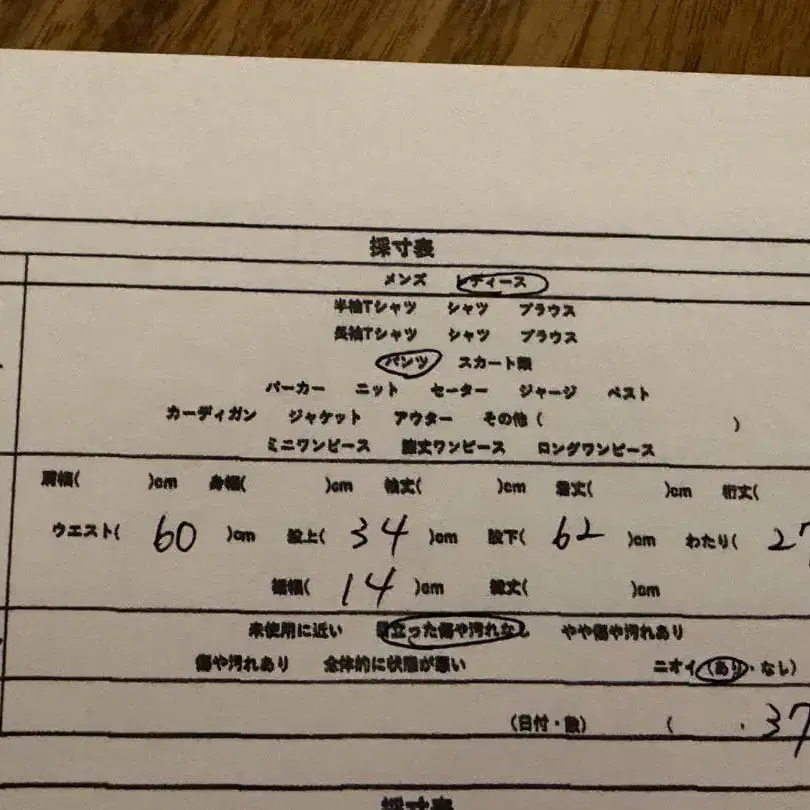 採寸表
メンズ レディース
半袖Tシャツ シャツ ブラウス
長袖Tシャツ シャツ ブラウス
パンツ スカート類
パーカー ニット セーター ジャージ ベスト
カーディガン ジャケット アウター その他( )
ミニワンピース 膝丈ワンピース ロングワンピース
肩幅( )cm 身幅( )cm 袖丈( )cm 着丈( )cm 裄丈(
ウエスト( 60 )cm 股上( 34 )cm 股下( 62 )cm わたり( 27
裾幅( 14 )cm 総丈( )cm
未使用に近い 目立った傷や汚れなし やや傷や汚れあり
傷や汚れあり 全体的に状態が悪い ニオイ(あり・なし)
(日付・数) ( ・37
採寸表